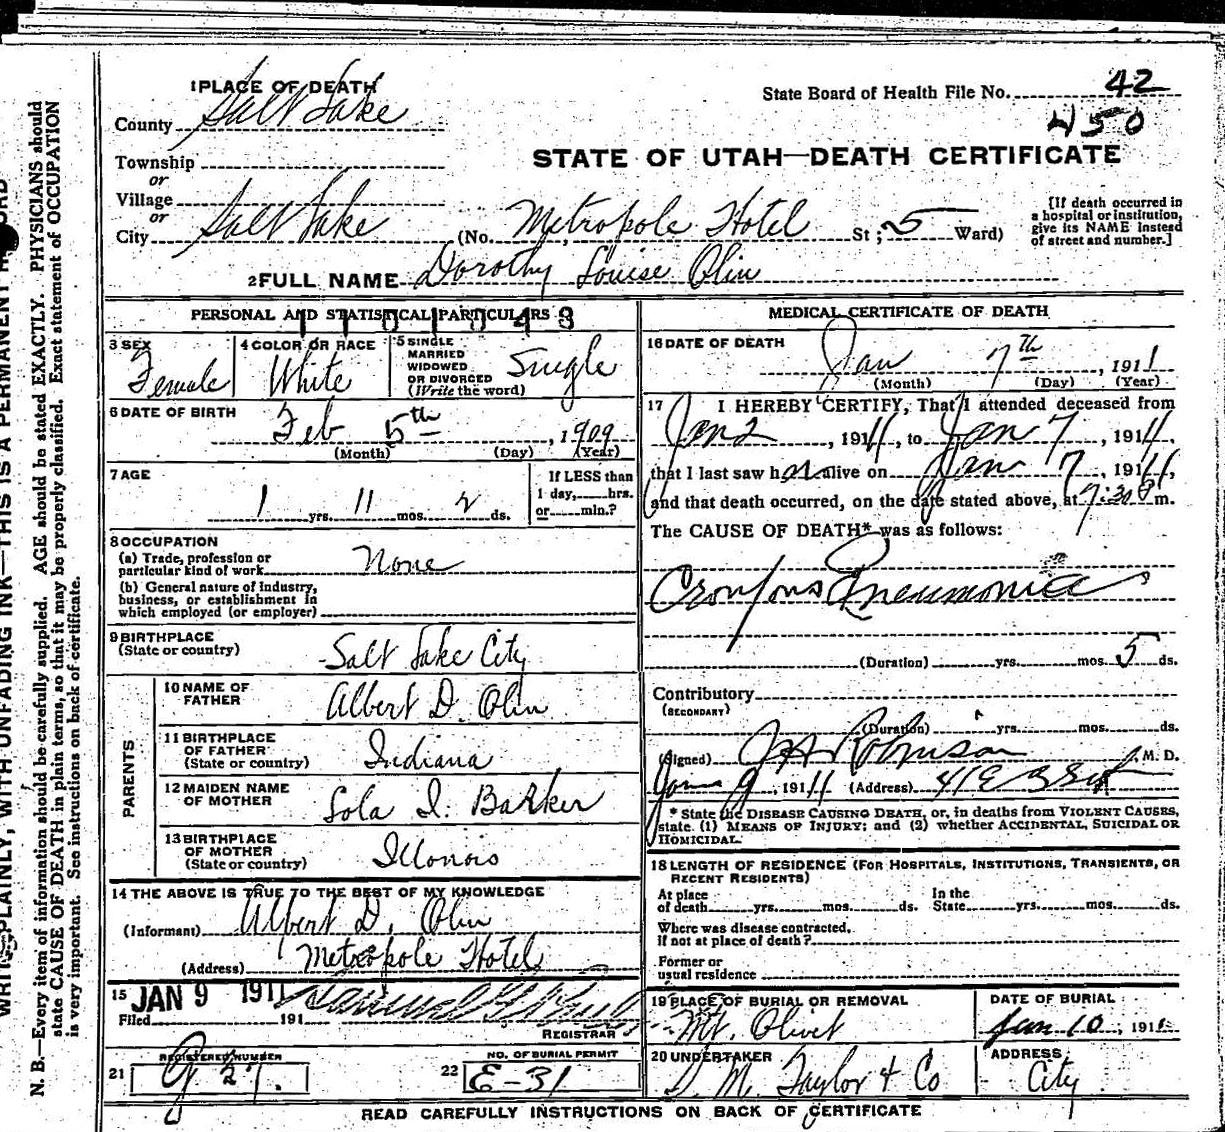 1 PLACE OF DEATH
County Salt Lake
State Board of Health File No. 42
450
Township
or
STATE OF UTAH—DEATH CERTIFICATE
Village
or
City Salt Lake (No. Metropole Hotel St; 5 Ward)
[If death occurred in a hospital or institution, give its NAME instead of street and number.]
2 FULL NAME Dorothy Louise Olin
PERSONAL AND STATISTICAL PARTICULARS
3 SEX
Female
4 COLOR OR RACE
White
5 SINGLE
MARRIED
WIDOWED
OR DIVORCED
(Write the word)
Single
6 DATE OF BIRTH
Feb 5th, 1909
(Month) (Day) (Year)
7 AGE
1 yrs. 11 mos. 2 ds.
If LESS than
1 day, hrs.
or min.?
8 OCCUPATION
(a) Trade, profession or
particular kind of work None
(b) General nature of industry,
business, or establishment in
which employed (or employer)
9 BIRTHPLACE
(State or country) Salt Lake City
PARENTS
10 NAME OF
FATHER Albert D. Olin
11 BIRTHPLACE
OF FATHER
(State or country) Indiana
12 MAIDEN NAME
OF MOTHER Lola I. Barker
13 BIRTHPLACE
OF MOTHER
(State or country) Illonois
14 THE ABOVE IS TRUE TO THE BEST OF MY KNOWLEDGE
(Informant) Albert D. Olin
(Address) Metropole Hotel
15 JAN 9 1911
Filed 191
REGISTRAR
REGISTERED NUMBER
21 G 27.
NO. OF BURIAL PERMIT
22 E-31
MEDICAL CERTIFICATE OF DEATH
16 DATE OF DEATH
Jan 7th, 1911
(Month) (Day) (Year)
17 I HEREBY CERTIFY, That I attended deceased from
Jan 2, 1911, to Jan 7, 1911,
that I last saw her alive on Jan 7, 1911,
and that death occurred, on the date stated above, at 9:30 P m.
The CAUSE OF DEATH* was as follows:
Croupous Pneumonia
(Duration) yrs. mos. 5 ds.
Contributory
(SECONDARY)
(Duration) yrs. mos. ds.
(Signed) Robinson M. D.
Jan 9, 1911 (Address) 41 E 3 So
* State the DISEASE CAUSING DEATH, or, in deaths from VIOLENT CAUSES,
state (1) MEANS OF INJURY; and (2) whether ACCIDENTAL, SUICIDAL OR
HOMICIDAL.
18 LENGTH OF RESIDENCE (FOR HOSPITALS, INSTITUTIONS, TRANSIENTS, OR
RECENT RESIDENTS)
At place
of death yrs. mos. ds.
In the
State yrs. mos. ds.
Where was disease contracted,
if not at place of death?
Former or
usual residence
19 PLACE OF BURIAL OR REMOVAL
Mt. Olivet
DATE OF BURIAL
Jan 10, 1911
20 UNDERTAKER
S. M. Taylor & Co
ADDRESS
City
READ CAREFULLY INSTRUCTIONS ON BACK OF CERTIFICATE
PLAINLY, WITH UNFADING INK—THIS IS A PERMANENT
N. B.—Every item of information should be carefully supplied. AGE should be stated EXACTLY. PHYSICIANS should
state CAUSE OF DEATH in plain terms, so that it may be properly classified. Exact statement of OCCUPATION
is very important. See instructions on back of certificate.